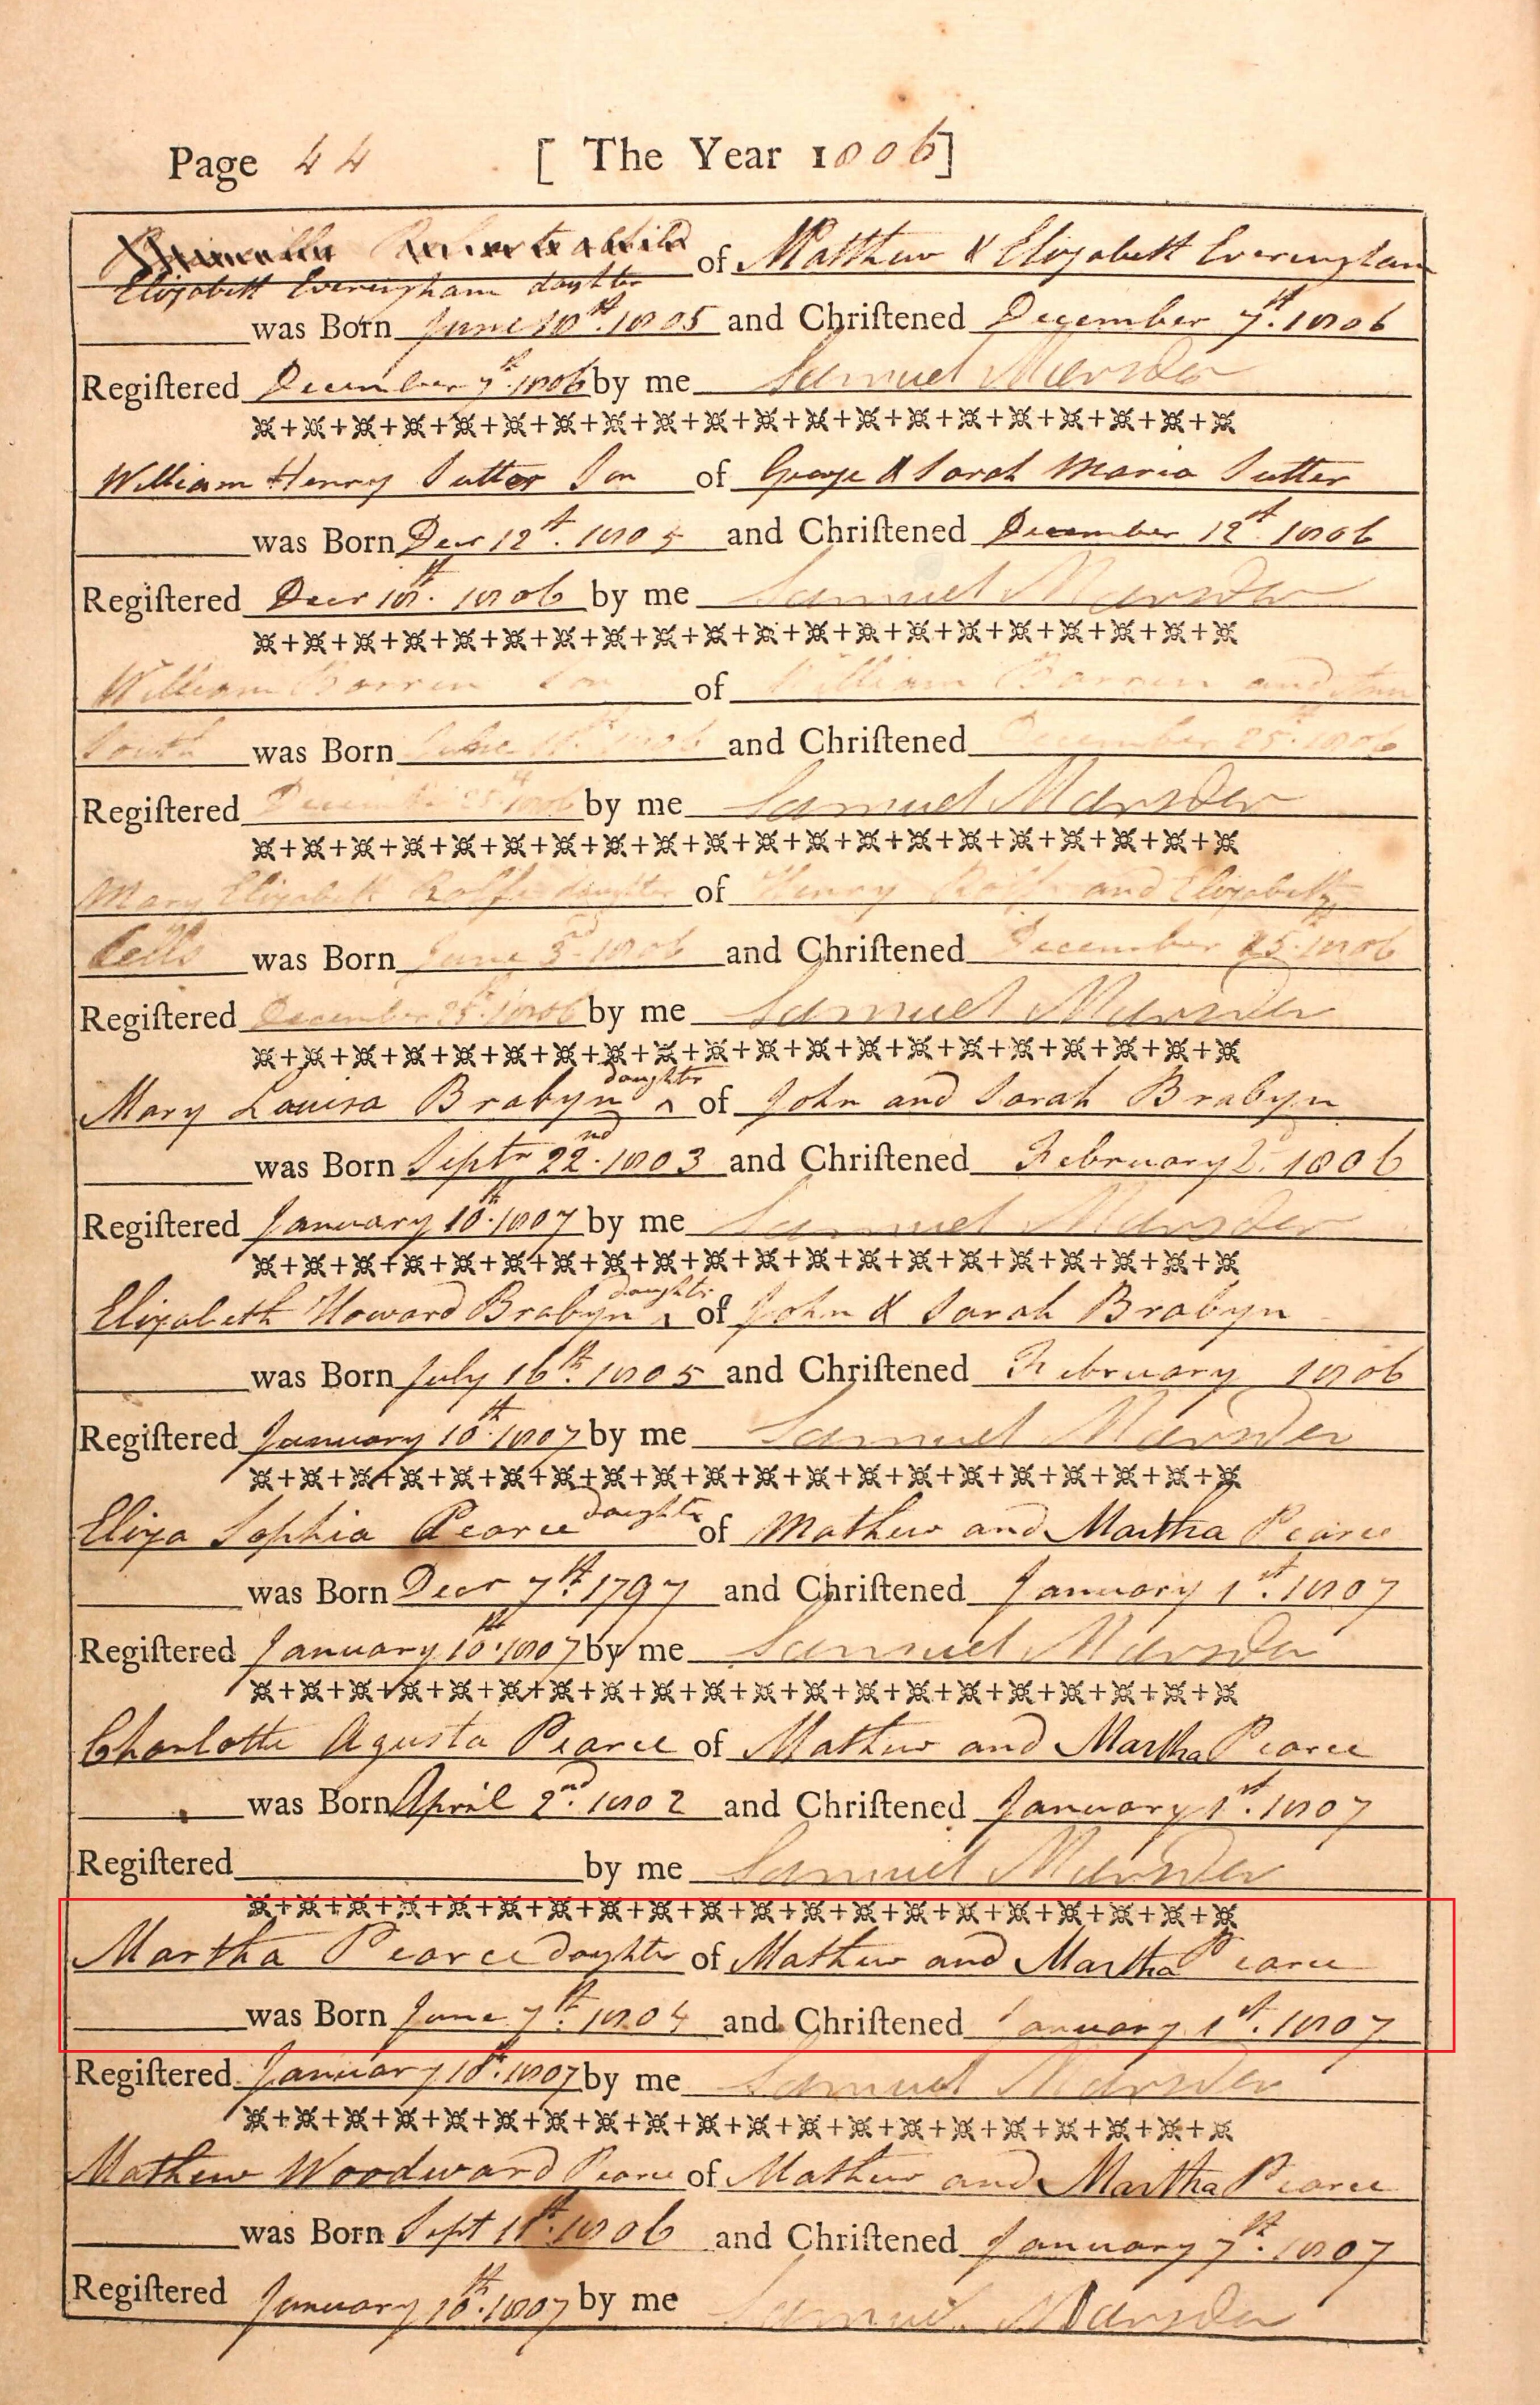 Page 44 [ The Year 1806]
of Matthew & Elizabeth Everingham
Elizabeth Everingham daughter
was Born June 10th. 1805 and Chriſtened December 7th. 1806
Regiſtered December 7th. 1806 by me Samuel Marsden
William Henry Sutter Son of George & Sarah Maria Sutter
was Born Decr 12th. 1805 and Chriſtened December 12th 1806
Regiſtered Decr 18th. 1806 by me Samuel Marsden
William Warren Son of William Warren and Ann
South was Born 1806 and Chriſtened December 25th. 1806
Regiſtered December 25th 1806 by me Samuel Marsden
Mary Elizabeth Rolfe daughter of Henry Rolfe and Elizabeth
Cells was Born June 3rd 1806 and Chriſtened December 25th. 1806
Regiſtered December 25th. 1806 by me Samuel Marsden
Mary Louisa Brabyn daughter of John and Sarah Brabyn
was Born Septr 22nd. 1803 and Chriſtened February 2d. 1806
Regiſtered January 10th. 1807 by me Samuel Marsden
Elizabeth Howard Brabyn daughter of John & Sarah Brabyn
was Born July 16th. 1805 and Chriſtened February 1806
Regiſtered January 10th. 1807 by me Samuel Marsden
Eliza Sophia Pearce daughter of Mathew and Martha Pearce
was Born Decr 7th. 1797 and Chriſtened January 1st. 1807
Regiſtered January 10th. 1807 by me Samuel Marsden
Charlotte Agusta Pearce of Mathew and Martha Pearce
was Born April 2nd. 1802 and Chriſtened January 1st. 1807
Regiſtered by me Samuel Marsden
Martha Pearce daughter of Mathew and Martha Pearce
was Born June 7th. 1804 and Chriſtened January 1st. 1807
Regiſtered January 10th. 1807 by me Samuel Marsden
Mathew Woodward Pearce of Mathew and Martha Pearce
was Born Sept 11th. 1806 and Chriſtened January 7th. 1807
Regiſtered January 10th. 1807 by me Samuel Marsden